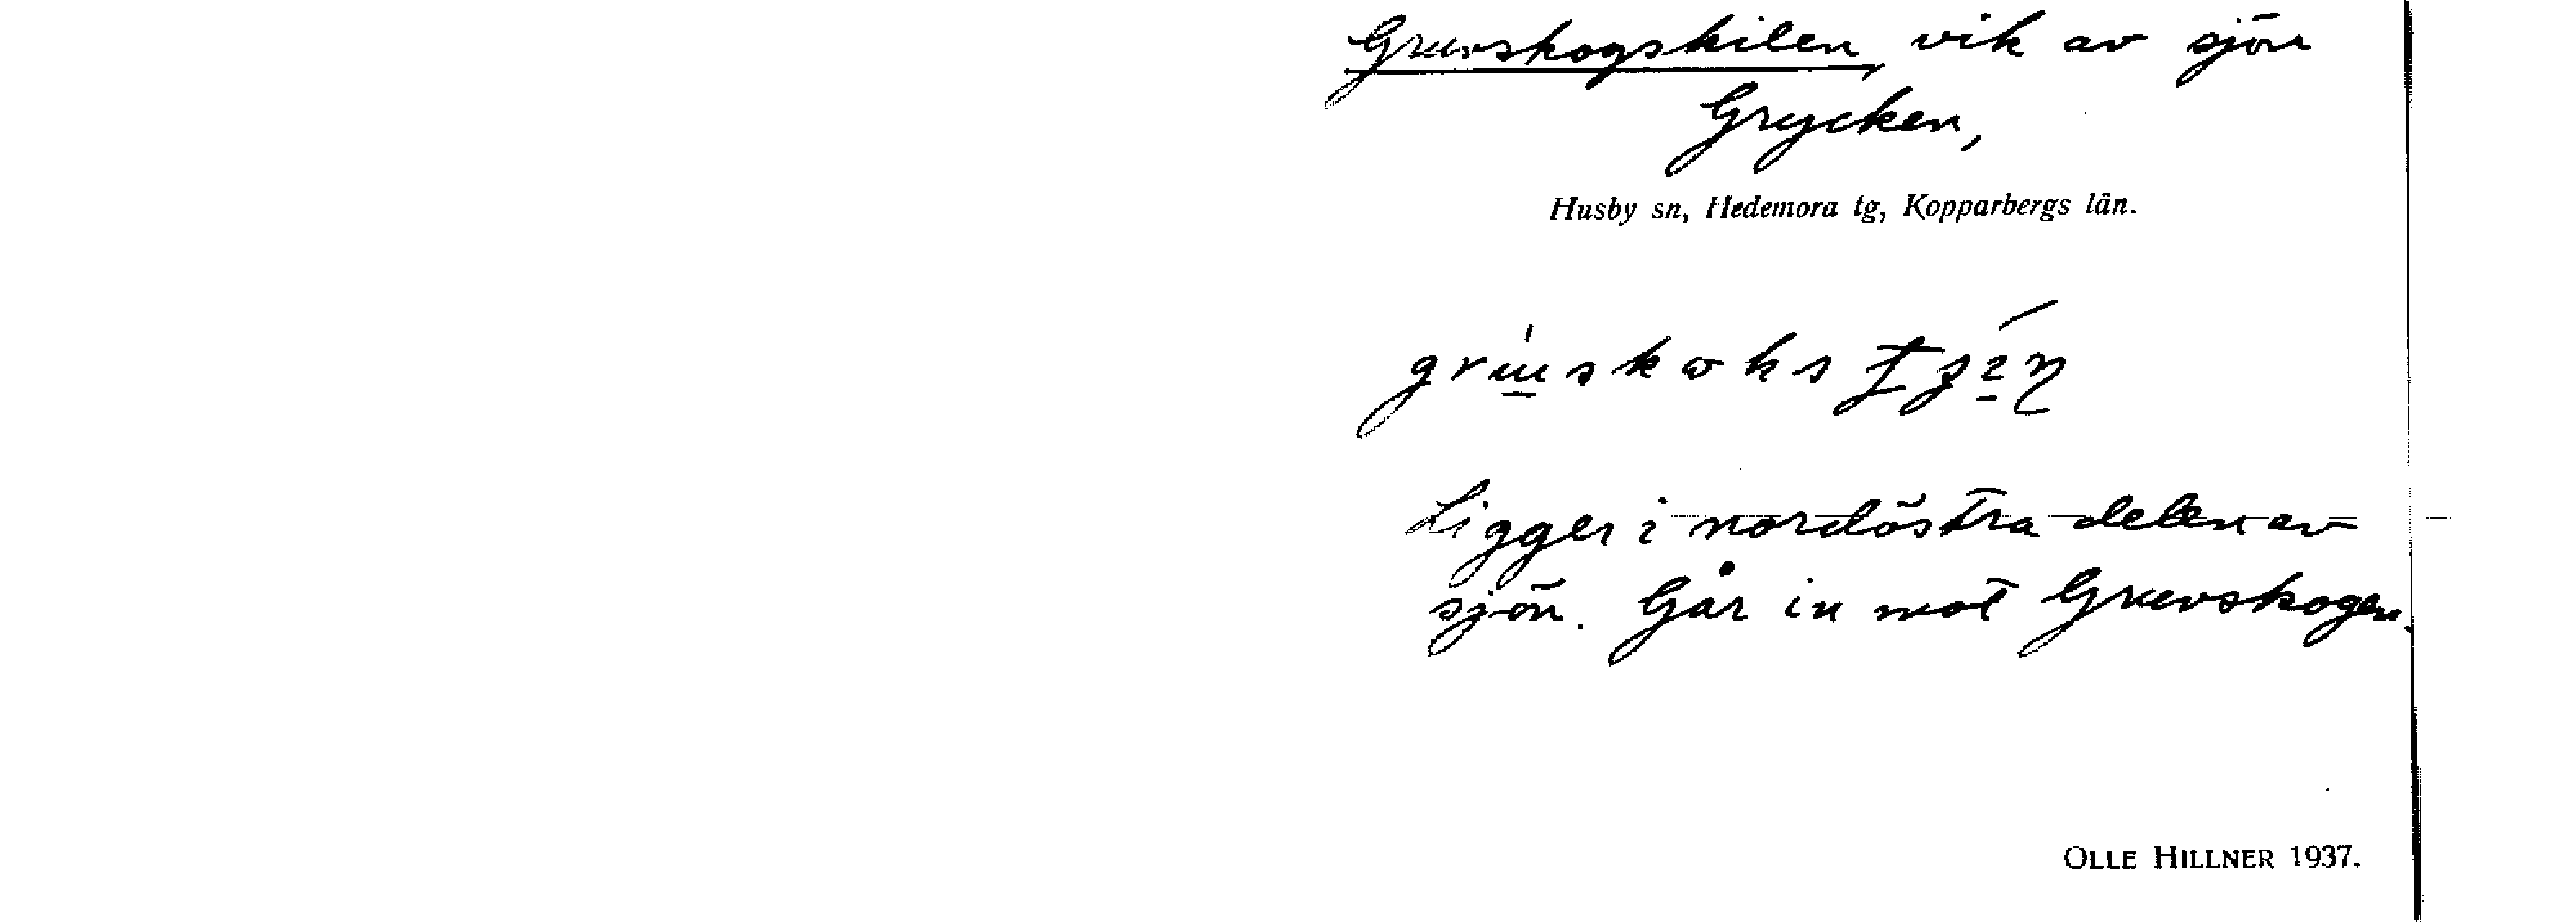 Gruvskogskilen, vik av sjön
Grycken,
Husby sn, Hedemora tg, Kopparbergs län.
Ligger i nordöstra delen av
sjön. Går in mot Gruvskogen.
OLLE HILLNER 1937.